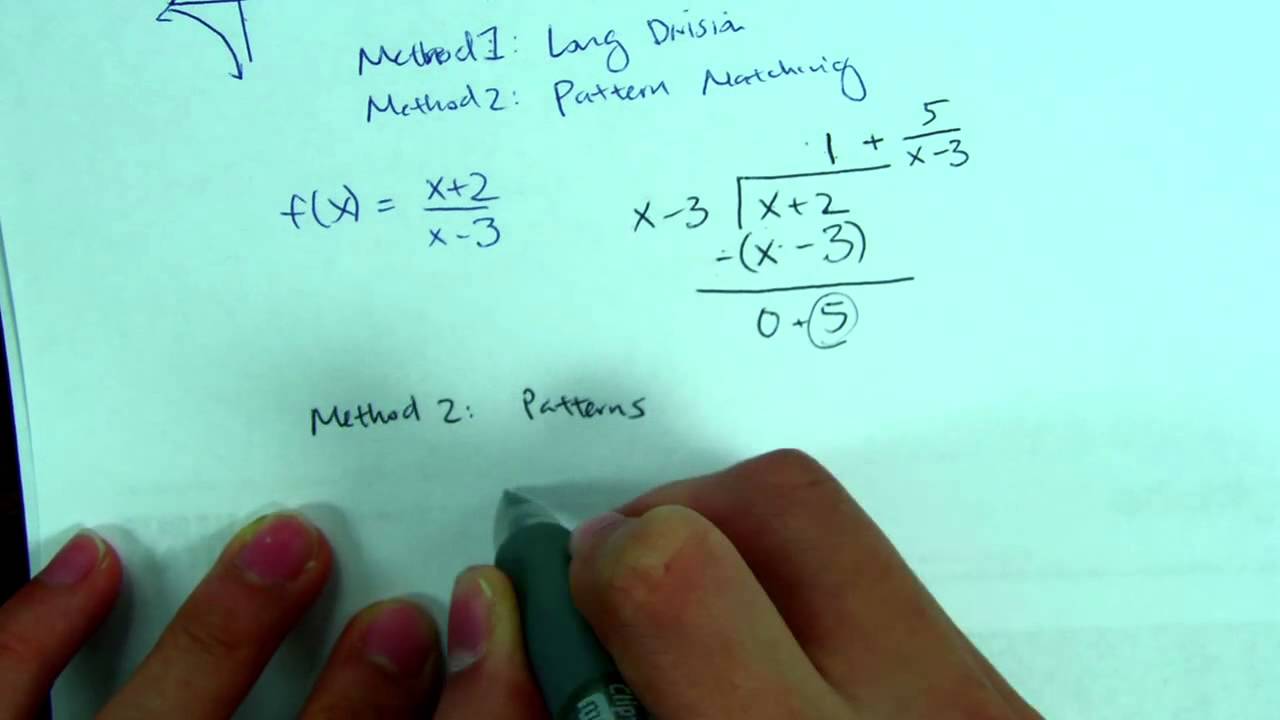 Method 1: Long Division
Method 2: Pattern Matching
f(x) = x+2 / x-3
1 + 5 / x-3
x-3 | x+2
-(x-3)
0+5
Method 2: Patterns
Clip